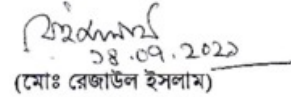 ১৪.০৭.২০২১
(মোঃ রেজাউল ইসলাম)